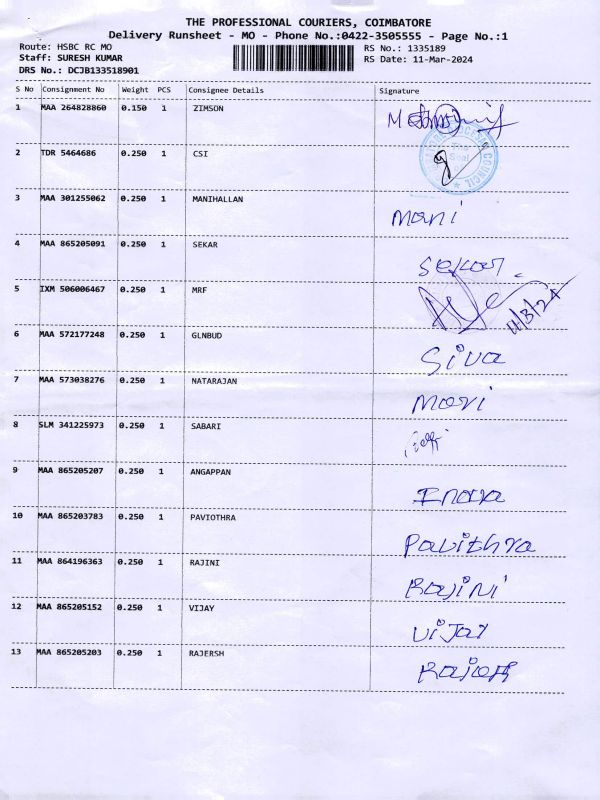 THE PROFESSIONAL COURIERS, COIMBATORE
Delivery Runsheet - MO - Phone No.:0422-3505555 - Page No.:1
Route: HSBC RC MO RS No.: 1335189
Staff: SURESH KUMAR RS Date: 11-Mar-2024
DRS No.: DCJB133518901
S No Consignment No Weight PCS Consignee Details Signature
1 MAA 264828860 0.150 1 ZIMSON
2 TDR 5464686 0.250 1 CSI
3 MAA 301255062 0.250 1 MANIHALLAN Mani
4 MAA 865205091 0.250 1 SEKAR Sekar.
5 IXM 506006467 0.250 1 MRF 11/3/24
6 MAA 572177248 0.250 1 GLNBUD Siva
7 MAA 573038276 0.250 1 NATARAJAN Mari
8 SLM 341225973 0.250 1 SABARI
9 MAA 865205207 0.250 1 ANGAPPAN
10 MAA 865203783 0.250 1 PAVIOTHRA Pavithra
11 MAA 864196363 0.250 1 RAJINI Rajini
12 MAA 865205152 0.250 1 VIJAY Vijay
13 MAA 865205203 0.250 1 RAJERSH